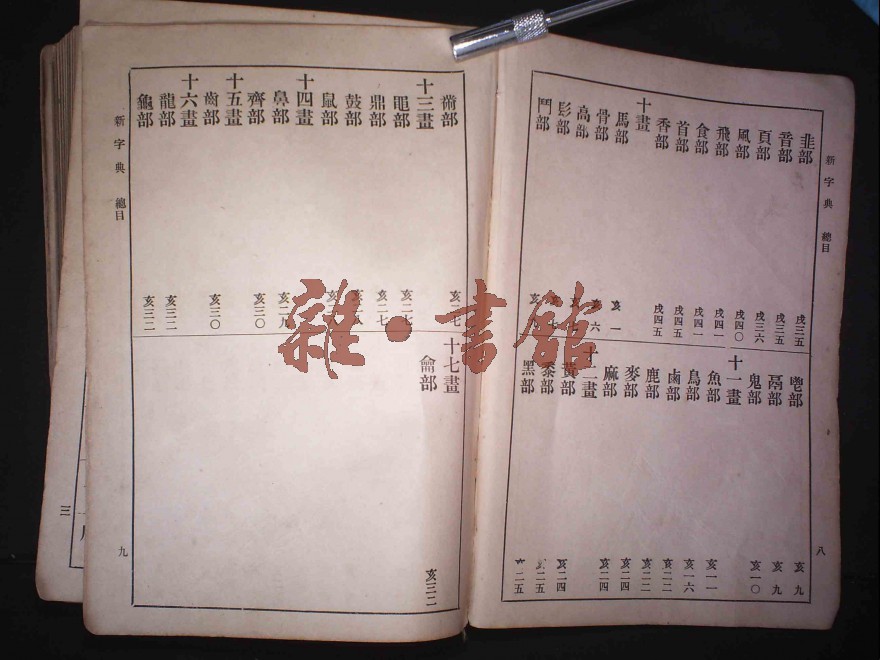 新字典 總目 八
韭部 戌三五
音部 戌三五
頁部 戌三六
風部 戌四〇
飛部 戌四一
食部 戌四一
首部 戌四五
香部 戌四五
十畫
馬部 亥一
骨部 亥六
高部
髟部 亥七
鬥部 亥
鬯部 亥九
鬲部 亥九
鬼部 亥一〇
十一畫
魚部 亥一一
鳥部 亥一六
鹵部 亥二二
鹿部 亥二二
麥部 亥二四
麻部 亥二四
十二畫
黃部 亥二四
黍部 亥二五
黑部 亥二五
黹部 亥二七
十三畫
黽部 亥二七
鼎部 亥二七
鼓部 亥二八
鼠部 亥
十四畫
鼻部 亥二九
齊部 亥三〇
十五畫
齒部 亥三〇
十六畫
龍部 亥三二
龜部 亥三二
十七畫
龠部 亥三二
新字典 總目 九
三
雜·書館